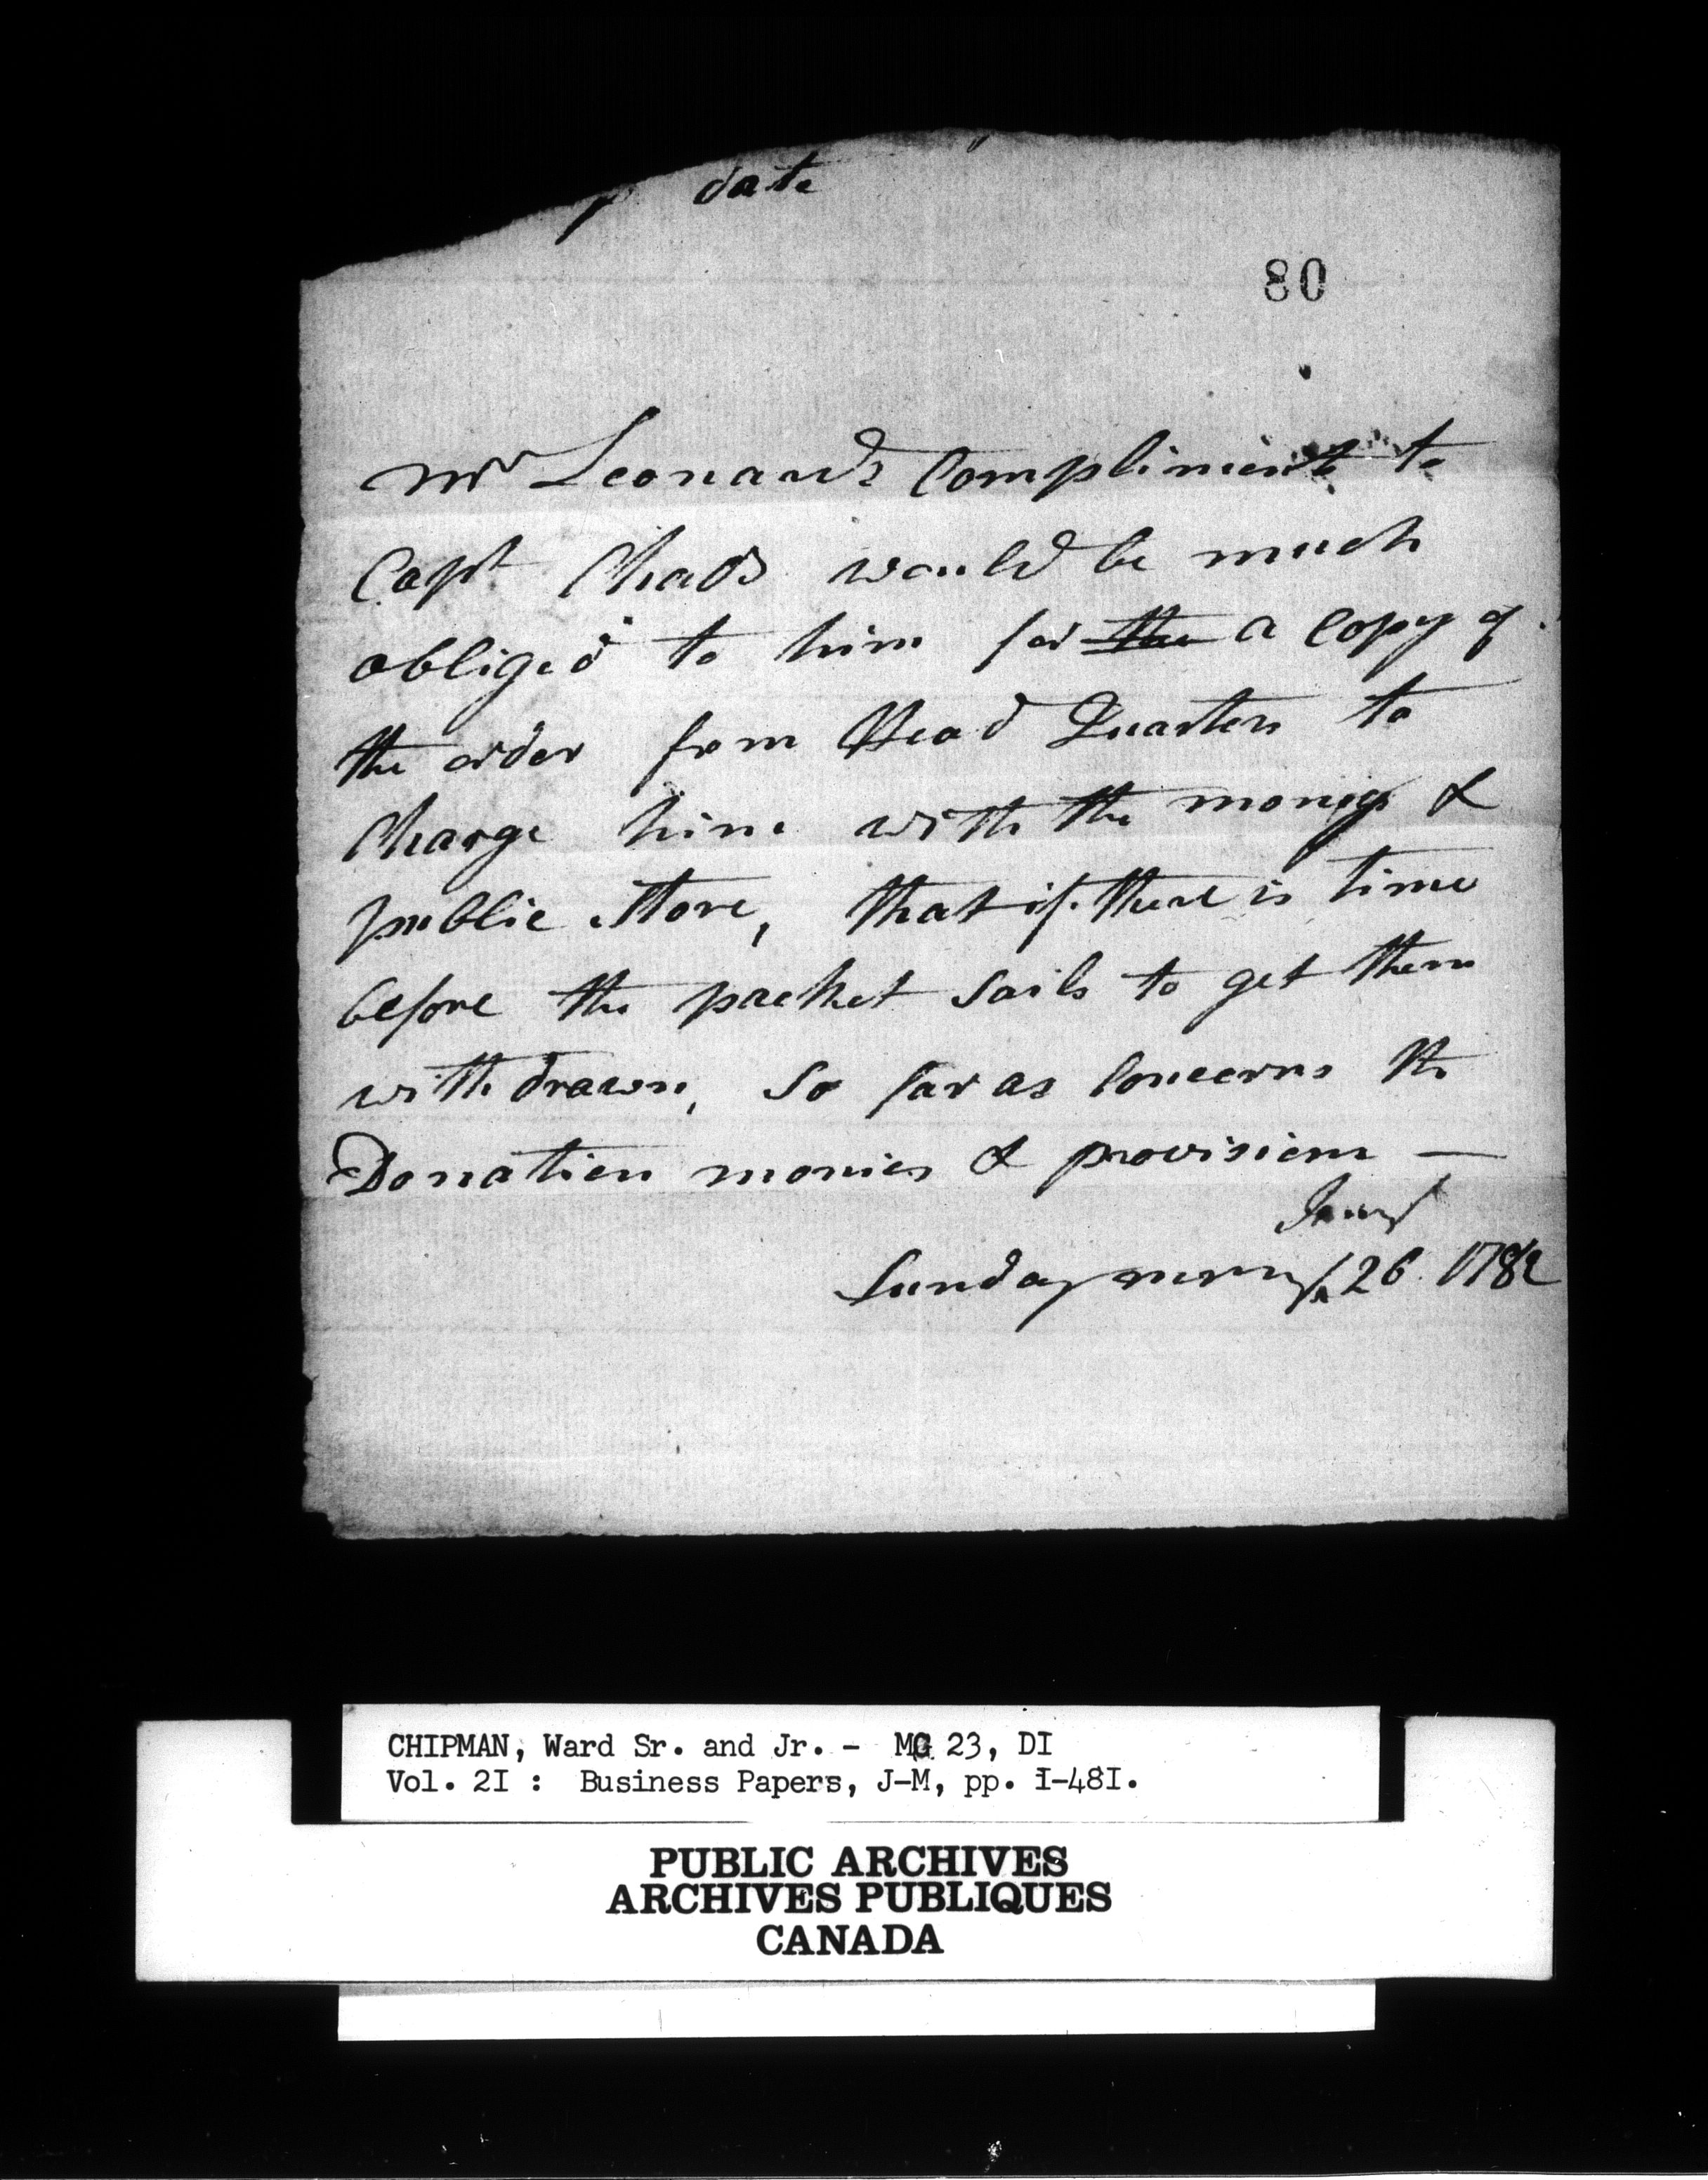 date
80
Mr Leonards Compliments to
Capt Chads would be much
obliged to him for the a Copy of
the order from Head Quarters to
Charge him with the monies &
public Store, that if there is time
before the packet Sails to get them
withdrawn, So far as Concerns the
Donation monies & provisions —
Sunday morng 26 1782
CHIPMAN, Ward Sr. and Jr. - MG 23, DI
Vol. 2I : Business Papers, J-M, pp. I-48I.
PUBLIC ARCHIVES
ARCHIVES PUBLIQUES
CANADA